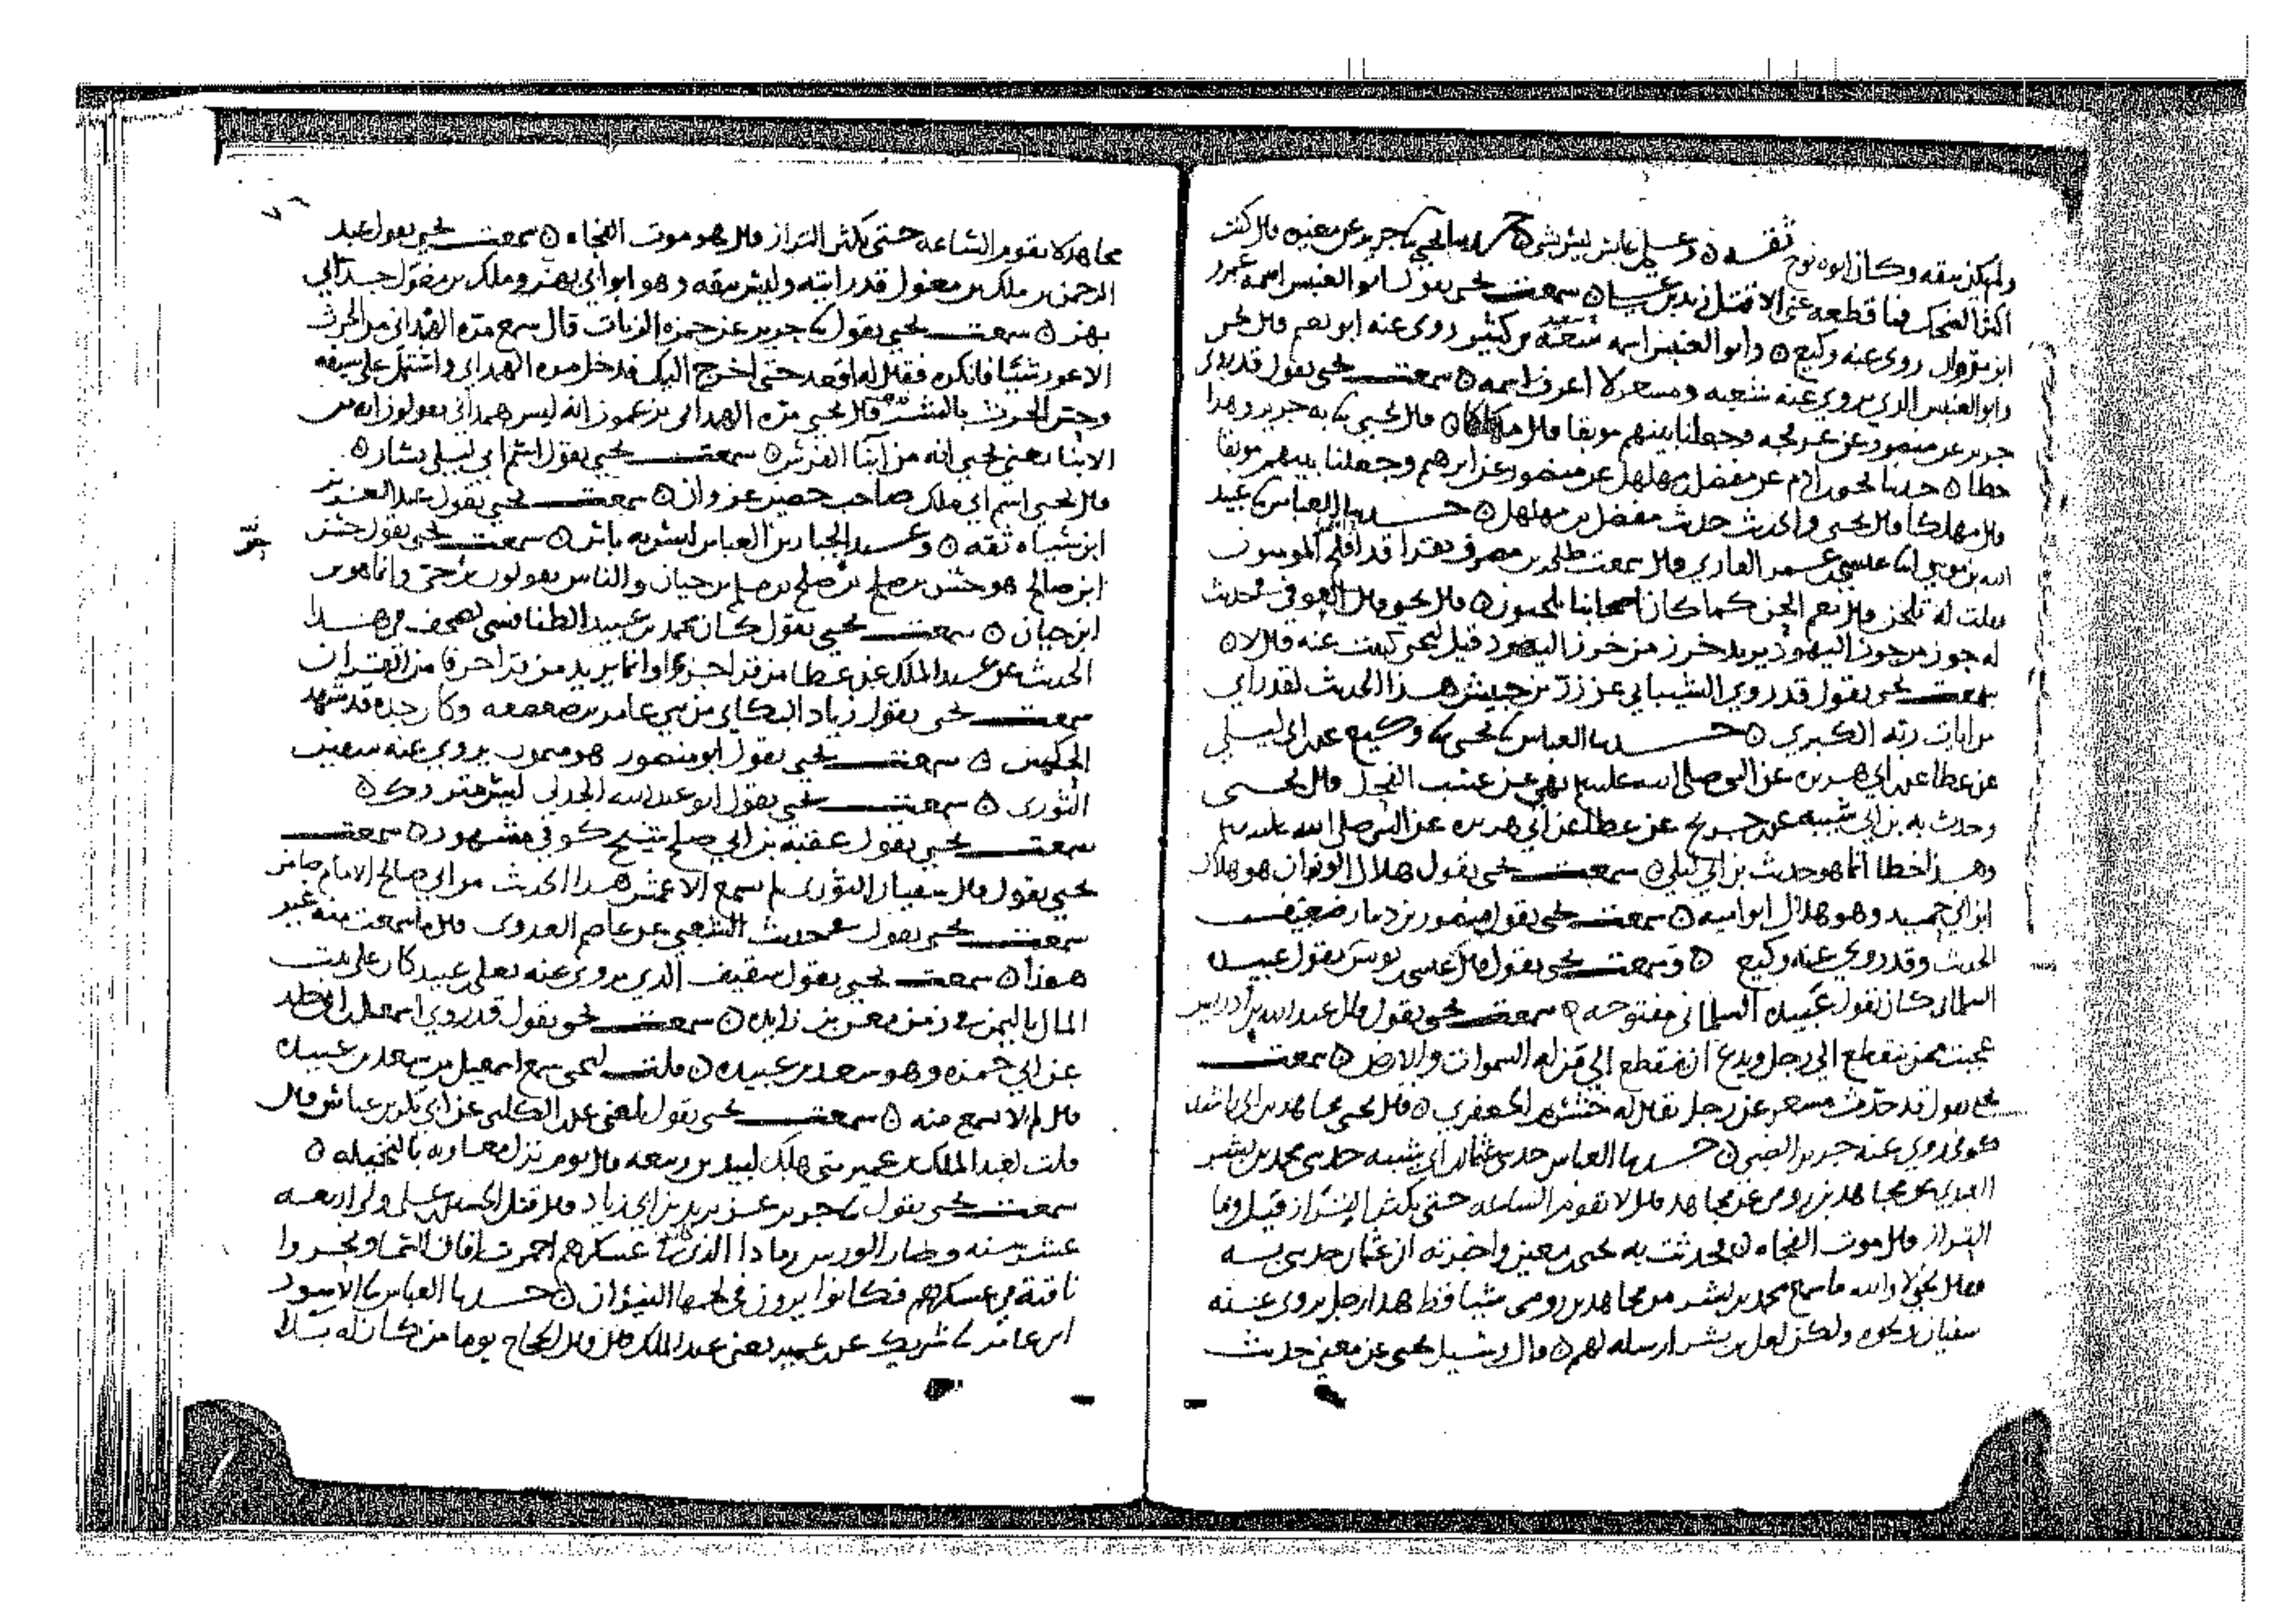 ولم يكن بثقه وكان ابوه نوح ثقه ٥ و علي بن عابس ليس بشي ٥ حدثنا يحيى نا جرير عن مغيره قال كنت
ابن مروان روى عنه وكيع ٥ وابو العنبس اسمه سعيد بن كثير روى عنه ابو نعيم قال يحيى
وابو العنبس الذي يروي عنه شعبه ومسعر لا اعرف اسمه ٥ سمعت يحيى يقول قد روى
جرير عن منصور عن وجعلنا بينهم موبقا قال مهلكا ٥ قال يحيى نا به جرير وهذا
خطا ٥ حدثنا يحيى بن ادم عن مفضل بن مهلهل عن منصور عن ابرهيم وجعلنا بينهم موبقا
قال مهلكا قال يحيى والحديث حديث مفضل بن مهلهل ٥ حدثنا العباس نا عبيد
الله بن موسى انا عيسى بن عمر القاري قال سمعت طلحه بن مصرف يقرا قد افلح المومنون
فقلت له تلحن قال نعم الحن كما كان اصحابنا يلحنون ٥ قال يحيى قال العوفي في حديث
له جوز من جوز اليهود يريد خرز من خرز اليهود قيل ليحيى كتبت عنه قال لا ٥
سمعت يحيى يقول قد روى الشيباني عن زر بن حبيش هذا الحديث لقد راى
من ايات ربه الكبرى ٥ حدثنا العباس نا يحيى نا وكيع عن ابن ابي ليلى
عن عطا عن ابي هريره عن النبي صلى الله عليه وسلم نهى عن عسب الفحل قال يحيى
وحدث به بن ابي شيبه عن جريج عن عطا عن ابي هريره عن النبي صلى الله عليه وسلم
وهذا خطا انما هو حديث بن ابي ليلى ٥ سمعت يحيى يقول هلال الوزان هو هلال
ابن ابي حميد وهو هلال ابو اميه ٥ سمعت يحيى يقول منصور بن دينار ضعيف
الحديث وقد روى عنه وكيع ٥ وسمعت يحيى يقول قال عيسى بن يونس يقول عبيده
السلماني كان يقول عبيده السلماني مفتوحه ٥ سمعت يحيى يقول قال عبد الله بن ادريس
عجبت ممن ينقطع الى رجل ويدع ان ينقطع الى من له السموات والارض ٥ سمعت
يحيى يقول قد حدث مسعر عن رجل يقال له خشرم الجعفري ٥ قال يحيى مجاهد بن ابي راشد
كوفي روى عنه جرير الضبي ٥ حدثنا العباس حدثني عثمان بن ابي شيبه حدثني محمد بن بشر
العبدي عن مجاهد بن رومي عن مجاهد قال لا تقوم الساعه حتى يكثر التراز قيل وما
التراز قال موت الفجاه ٥ فحدثت به يحيى بن معين واخبرته ان عثمان حدثني به
فقال يحيى لا والله ما سمع محمد بن بشر من مجاهد بن رومي شيا قط هذا رجل يروي عنه
سفيان ونحوه ولكن لعل بن بشر ارسله لهم ٥ قال وسئل يحيى عن معنى حديث
مجاهد لا تقوم الساعه حتى يكثر التراز قال هو موت الفجاه ٥ سمعت يحيى يقول عبد
الرحمن بن ملك بن مغول قد رايته وليس بثقه وهو ابو ابي بهز وملك بن مغول جد ابي
بهز ٥ سمعت يحيى يقول نا جرير عن حمزه الزيات قال سمع مره الهمداني من الحرث
الاعور شيئا فانكره فقال له اقعد حتى اخرج اليك فدخل مره الهمداني واشتمل على سيفه
وحس الحرث بالشر قال يحيى مره الهمداني يزعمون انه ليس همداني يقولون انه من
الابنا يعني يحيى انه من ابنا الفرس ٥ سمعت يحيى يقول اسم ابي ليلى يسار ٥
قال يحيى اسم ابي ملك صاحب حصين غزوان ٥ سمعت يحيى يقول عبد العزيز
ابن سياه ثقه ٥ و عبد الجبار بن العباس ليس به باس ٥ سمعت يحيى يقول حسن
ابن صالح هو حسن بن صلح بن صلح بن مسلم بن حيان والناس يقولون بن حي وانما هو بن
ابن حيان ٥ سمعت يحيى يقول كان محمد بن عبيد الطنافسي يصحف في هذا
الحديث عن عبد الملك عن عطا من قرا جزءا وانما يريد من قرا حرفا من القران
سمعت يحيى يقول زياد البكائي من بني عامر بن صعصعه وكان جده قد شهد
الحكمين ٥ سمعت يحيى يقول ابو منصور هو ميمون يروي عنه سفيان
الثوري ٥ سمعت يحيى يقول ابو عبد الله الجدلي ليس متروك ٥
سمعت يحيى يقول عقبه بن ابي صلح شيخ كوفي مشهور ٥ سمعت
يحيى يقول قال سفيان الثوري لم يسمع الاعمش هذا الحديث من ابي صالح الامام ضامن
سمعت يحيى يقول في حديث الشعبي عن عاصم العدوي قال ما سمعت منه غير
هذا ٥ سمعت يحيى يقول سقيف الذي يروي عنه يعلى بن عبيد كان على بيت
المال باليمن في زمن معن بن زايده ٥ سمعت يحيى يقول قد روى اسمعيل بن ابي خالد
عن ابي حمزه وهو سعد بن عبيده ٥ قلت ليحيى سمع اسمعيل من سعد بن عبيده
قال لا لم يسمع منه ٥ سمعت يحيى يقول بلغني عن الكلبي عن ابي بكر بن عياش قال
قلت لعبد الملك بن عمير متى هلك لبيد بن ربيعه قال يوم نزل معاويه بالنخيله ٥
سمعت يحيى يقول نا جرير عن يزيد بن ابي زياد قال قتل الحسين بن علي ولي اربعه
عشر سنه وصار الورس رمادا الذي في عسكرهم احمرت افاق السما ونحروا
ناقة في عسكرهم فكانوا يرون في لحمها النيران ٥ حدثنا العباس نا الاسود
ابن عامر نا شريك عن عمير يعني عبد الملك قال قال الحجاج يوما من كان له بلا